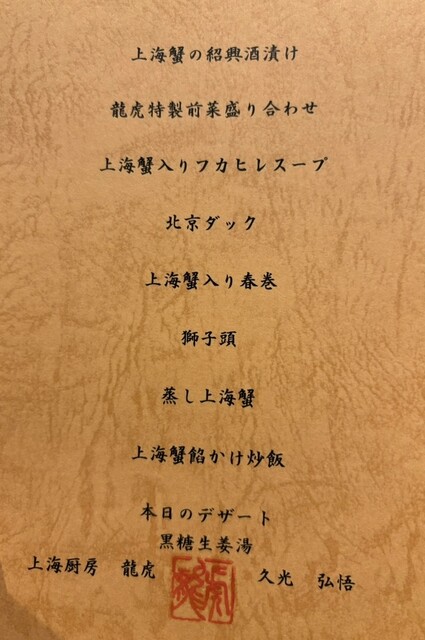 上海蟹の紹興酒漬け
龍虎特製前菜盛り合わせ
上海蟹入りフカヒレスープ
北京ダック
上海蟹入り春巻
獅子頭
蒸し上海蟹
上海蟹餡かけ炒飯
本日のデザート
黒糖生姜湯
上海厨房 龍虎 久光 弘悟